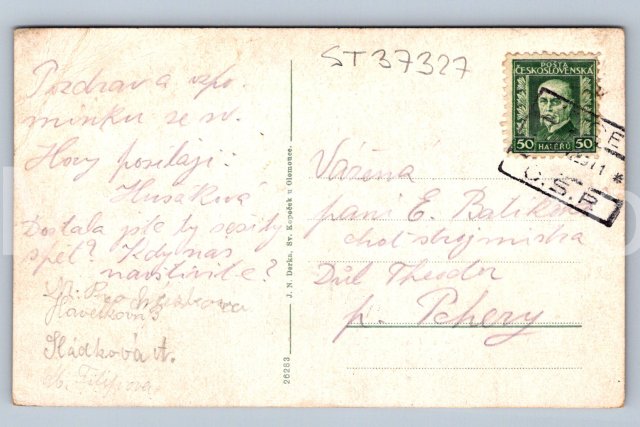 ST37327
Pozdrav a vzpo
mínku ze sv.
Hory posílají:
Husáková
Dostala jste ty sešity
zpět? Kdy nás
navštívíte?
Havelková B
Sládková A.
M. Filipova
J. N. Derka, Sv. Kopeček u Olomouce.
26283
POŠTA
ČESKOSLOVENSKÁ
50 HALÉŘŮ 50
Č.S.P.
Vážená
paní E. Batíkov
choť strojmistra
Důl Theodor
p. Pchery